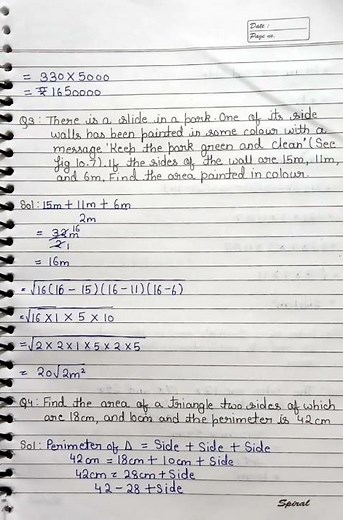 Date :
Page no.
= 330 X 5000
= ₹ 1650000
Q3: There is a slide in a park. One of its side
walls has been painted in some colour with a
message 'Keep the park green and clean' (See
fig 10.7). If the sides of the wall are 15m, 11m,
and 6m, Find the area painted in colour.
Sol: 15m + 11m + 6m
2m
= 32m 16
2 1
= 16m
= √16(16 - 15)(16 - 11)(16 - 6)
= √16 X 1 X 5 X 10
= √2 X 2 X 1 X 5 X 2 X 5
= 20√2m²
Q4: Find the area of a triangle two sides of which
are 18cm, and 10cm and the perimeter is 42cm
Sol: Perimeter of Δ = Side + Side + Side
42cm = 18cm + 10cm + Side
42cm = 28cm + Side
42 - 28 + Side
Spiral